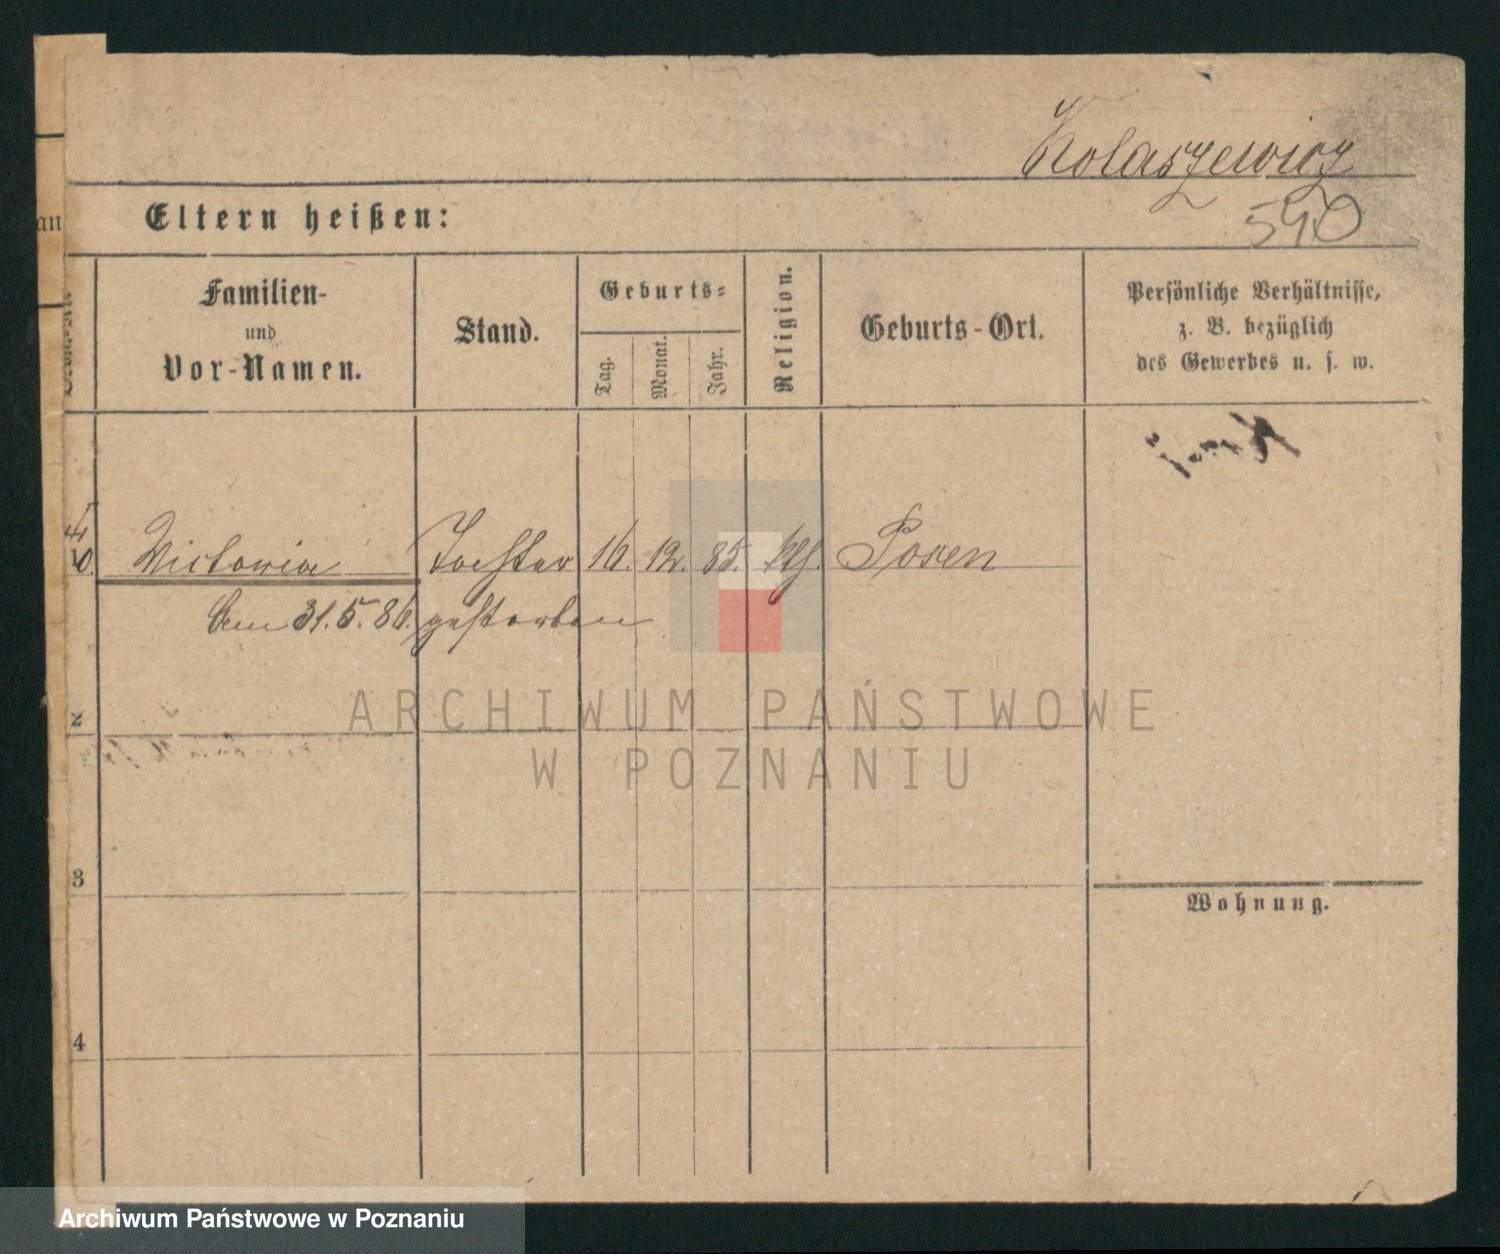 Kolaszewicz
Eltern heißen:
590
an
Familien-
und
Vor-Namen.
Stand.
Geburts-
Tag.
Monat.
Jahr.
Religion.
Geburts-Ort.
Persönliche Verhältnisse,
z. B. bezüglich
des Gewerbes u. s. w.
10. Victoria Tochter 16. 12. 85. kth. Posen
am 31.5.86. gestorben
2
3
Wohnung.
4
ARCHIWUM PAŃSTWOWE
W POZNANIU
Archiwum Państwowe w Poznaniu